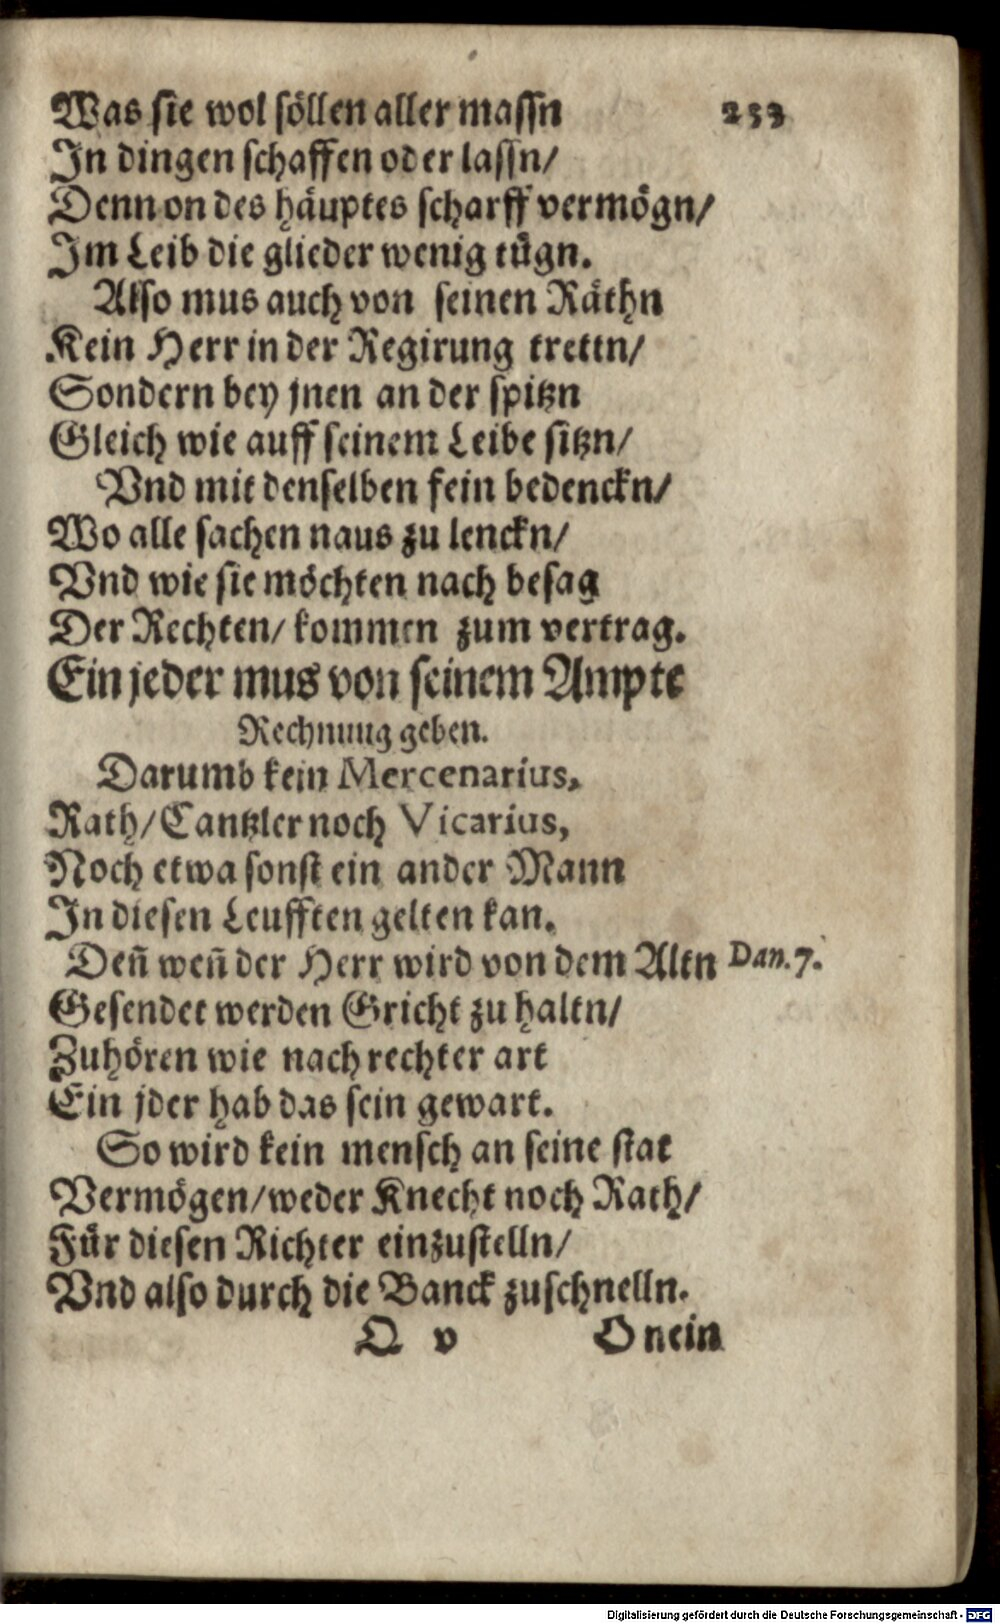 Was sie wol söllen aller massn 233
In dingen schaffen oder lassn/
Denn on des häuptes scharff vermögn/
Im Leib die glieder wenig tügn.
Also mus auch von seinen Räthn
Kein Herr in der Regirung trettn/
Sondern bey jnen an der spitzn
Gleich wie auff seinem Leibe sitzn/
Vnd mit denselben fein bedenckn/
Wo alle sachen naus zu lenckn/
Vnd wie sie möchten nach besag
Der Rechten/ kommen zum vertrag.
Ein jeder mus von seinem Ampte
Rechnung geben.
Darumb kein Mercenarius,
Rath/ Cantzler noch Vicarius,
Noch etwa sonst ein ander Mann
In diesen Leufften gelten kan.
Deñ weñ der Herr wird von dem Altn Dan. 7.
Gesendet werden Gricht zu haltn/
Zuhören wie nach rechter art
Ein jder hab das sein gewart.
So wird kein mensch an seine stat
Vermögen/ weder Knecht noch Rath/
Für diesen Richter einzustelln/
Vnd also durch die Banck zuschnelln.
Q v O nein
Digitalisierung gefördert durch die Deutsche Forschungsgemeinschaft - DFG